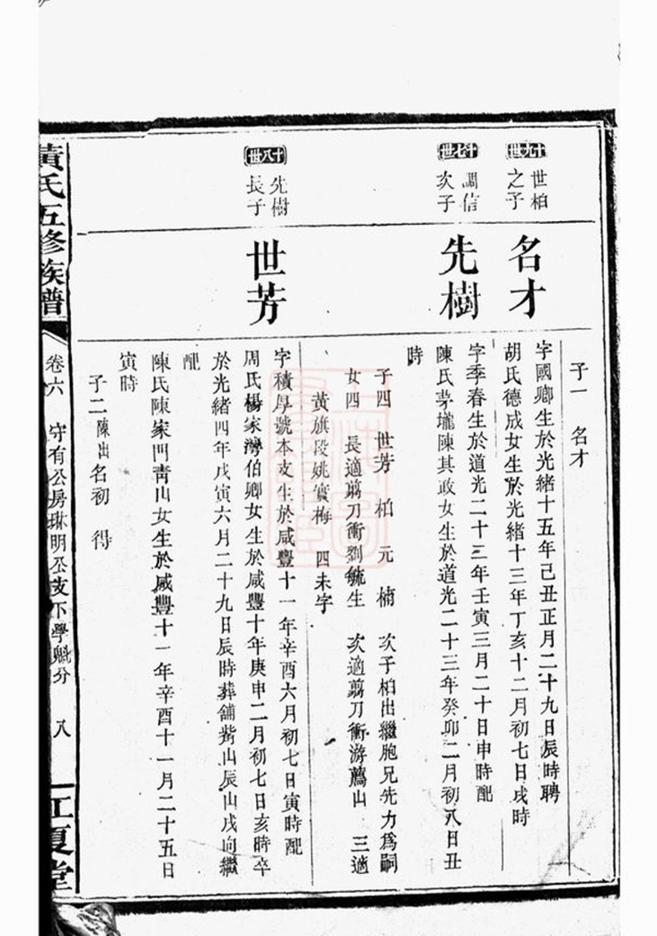 子一 名才
十九世
世柏
之子
名才
字國卿生於光緒十五年己丑正月二十九日辰時聘
胡氏德成女生於光緒十三年丁亥十二月初七日戌時
十七世
調信
次子
先樹
字季春生於道光二十三年壬寅三月二十日申時配
陳氏茅壠陳其政女生於道光二十三年癸卯二月初八日丑
時
子四 世芳 柏 元 楠 次子柏出繼胞兄先力為嗣
女四 長適翦刀衝劉毓生 次適翦刀衝游薦山 三適
黃旗段姚實梅 四未字
十八世
先樹
長子
世芳
字積厚號本支生於咸豐十一年辛酉六月初七日寅時配
周氏楊家灣伯卿女生於咸豐十年庚申二月初七日亥時卒
於光緒四年戊寅六月二十九日辰時葬舖背山辰山戌向繼
配
陳氏陳家門青山女生於咸豐十一年辛酉十一月二十五日
寅時
子二陳出名初 得
黃氏五修族譜
卷六 守有公房琳明公支下學魁分 八
江夏堂